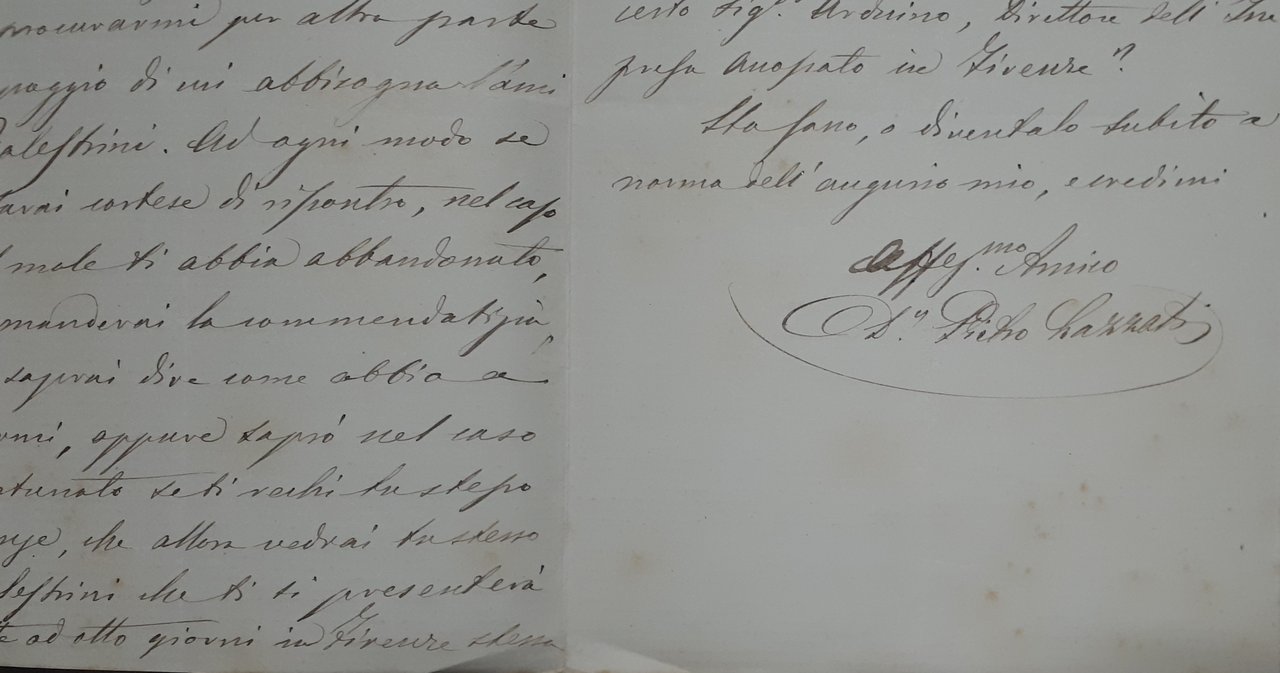 procurarmi per altra parte
paggio di cui abbisogna l'ami
alestrini. Ad ogni modo se
arai cortese di risontro, nel caso
male ti abbia abbandonato,
manderai la commendatizia,
saprai dire come abbia a
rmi, oppure saprò nel caso
rtunato se ti rechi tu stesso
che allora vedrai tu stesso
lestrini che ti si presenterà
ad otto giorni in Firenze stessa
certo Sigr. Arduino, Direttore dell' Im
presa Anonato in Firenze".
Sta sano, o diventalo subito a
norma dell' augurio mio, e credimi
Affez.mo Amico
Dn. Pietro Lazzati